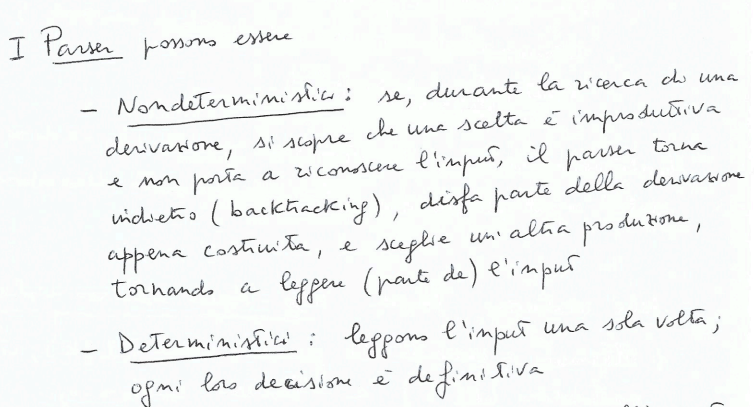 I Parser possono essere
- Nondeterministici: se, durante la ricerca di una
derivazione, si scopre che una scelta è improduttiva
e non porta a riconoscere l'input, il parser torna
indietro (backtracking), disfa parte della derivazione
appena costruita, e sceglie un'altra produzione,
tornando a leggere (parte de) l'input
- Deterministici: leggono l'input una sola volta;
ogni loro decisione è definitiva